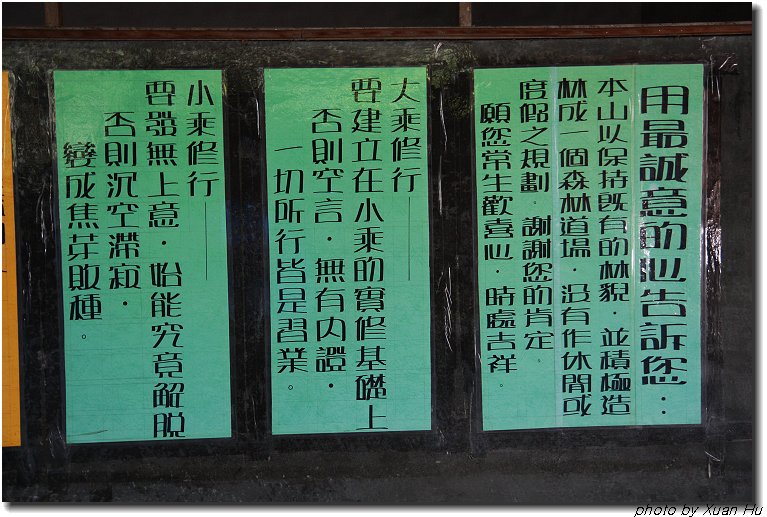 用最誠意的心告訴您：
本山以保持既有的林貌．並積極造
林成一個森林道場．没有作休閒或
度假之規劃．謝謝您的肯定。
願您常生歡喜心．時處吉祥。
大乘修行——
要建立在小乘的實修基礎上
否則空言．無有内證．
一切所行皆是習業。
小乘修行——
要發無上意．始能究竟解脱
否則沉空滯寂．
變成焦芽敗種。
photo by Xuan Hu